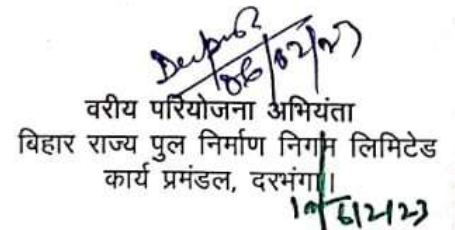 06/02/23
वरीय परियोजना अभियंता
बिहार राज्य पुल निर्माण निगम लिमिटेड
कार्य प्रमंडल, दरभंगा।
6/2/23